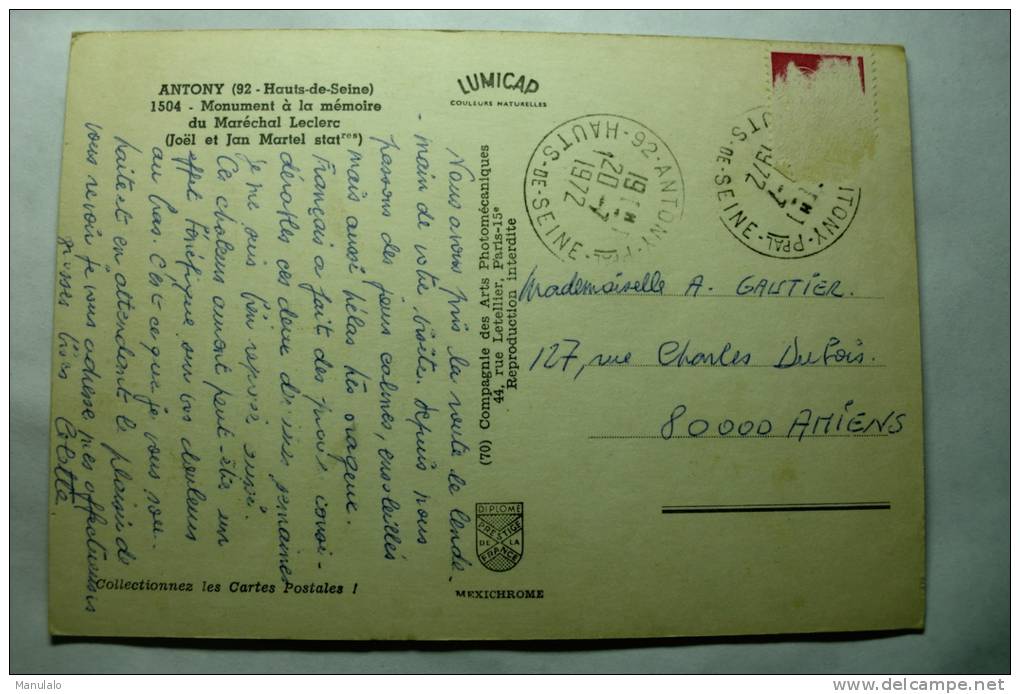 ANTONY (92 - Hauts-de-Seine)
1504 - Monument à la mémoire
du Maréchal Leclerc
(Joël et Jan Martel statres)
LUMICAP
COULEURS NATURELLES
Nous avons pris la route le lende-
main de votre visite. Depuis nous
passons des jours calmes, ensoleillés
mais aussi hélas très orageux.
François a fait des progrès consi-
dérables ces deux dernières semaines
je me suis bien reposée aussi.
Ces chaleurs auront peut-être un
effet bénéfique sur vos douleurs
au bras. C'est ce que je vous sou-
haite et en attendant le plaisir de
vous revoir je vous adresse mes affectueuses
grosses bises
Colette
(70) Compagnie des Arts Photomécaniques
44, rue Letellier, Paris-15e
Reproduction interdite
92-ANTONY-PPAL
HAUTS-DE-SEINE
19H
20-7
1972
ANTONY-PPAL
HAUTS-DE-SEINE
-7
1972
Mademoiselle A. GAUTIER.
127, rue Charles Dubois.
80000 AMIENS
DIPLOME
PRESTIGE
DE LA
FRANCE
MEXICHROME
Collectionnez les Cartes Postales !
Manulalo
delcampe.net